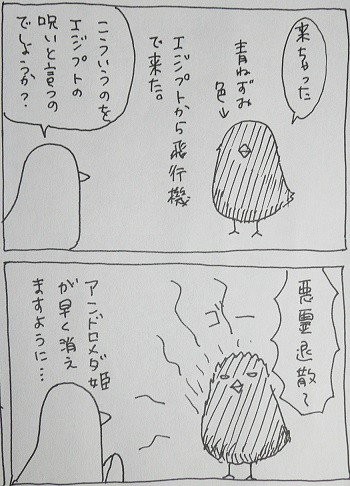 来ちゃった
青ねずみ
色→
エジプトから飛行機
で来た。
こういうのを
エジプトの
呪いと言うの
でしょうか?
悪霊退散〜
ゴー
アンドロメダ姫
が早く消え
ますように…